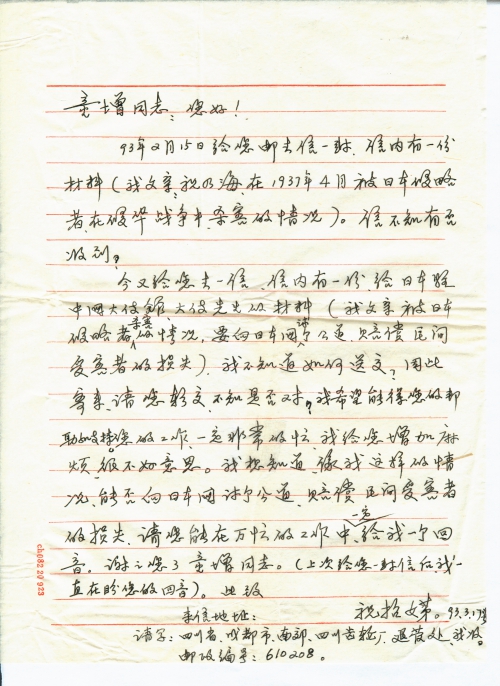 童增同志：您好！
93年2月15日给您邮去信一封，信内有一份
材料（我父亲祝乃海，在1937年4月被日本侵略
者，在侵华战争中，杀害的情况）。信不知有否
收到？
今又给您去一信，信内有一份给日本驻
中国大使馆大使先生的材料（我父亲被日本
侵略者杀害的情况，要向日本国讨个公道，赔偿民间
受害者的损失），我不知道如何送交，因此
寄来，请您转交，不知是否对？我希望能得您的帮
助和支持，您的工作一定非常的忙，我给您增加麻
烦，很不好意思。我想知道，像我这样的情
况，能否向日本国讨个公道，赔偿民间受害者
的损失，请您能在万忙的工作中，一定给我一个回
音。谢谢您了童增同志。（上次给您一封信后我一
直在盼您的回音）。此致
祝招娣。93.3.17号
来信地址：
请寄：四川省，成都市，南郊，四川齿轮厂，退管处，我收。
邮政编号：610208。
ch082 20 923